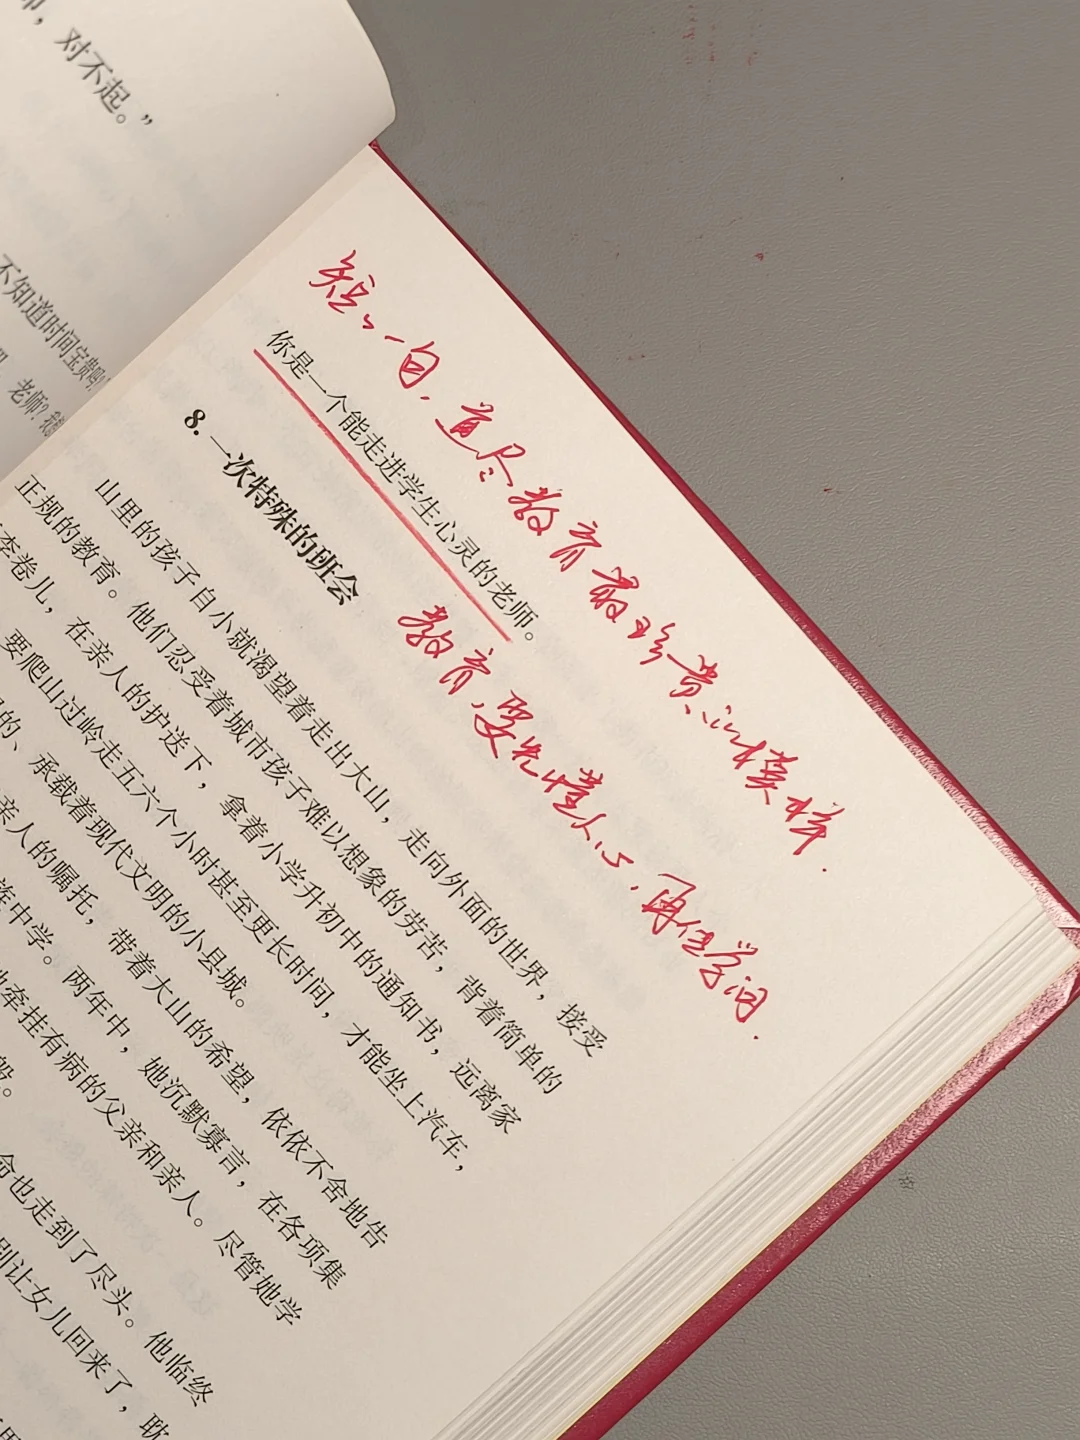 ，对不起。”
不知道时间宝贵吗
老师？我
短短一句，道尽教育最珍贵的模样.
你是一个能走进学生心灵的老师。
教育，要先懂人心，再住学问.
8. 一次特殊的班会
山里的孩子自小就渴望着走出大山，走向外面的世界，接受
正规的教育。他们忍受着城市孩子难以想象的劳苦，背着简单的
李卷儿，在亲人的护送下，拿着小学升初中的通知书，远离家
要爬山过岭走五六个小时甚至更长时间，才能坐上汽车，
的、承载着现代文明的小县城。
亲人的嘱托，带着大山的希望，依依不舍地告
族中学。两年中，她沉默寡言，在各项集
牵挂有病的父亲和亲人。尽管她学
般。
命也走到了尽头。他临终
别让女儿回来了，耽